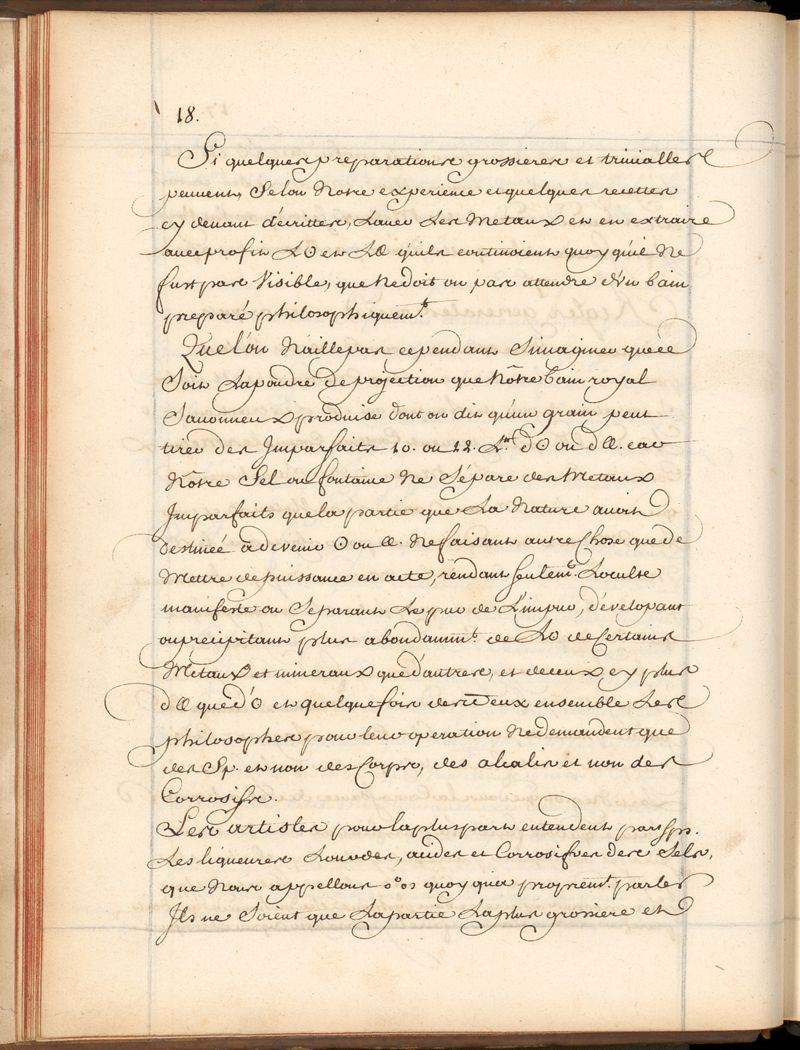 18.
Si quelques preparations grossieres et trivialles
peuvent, Selon Nôtre experience et quelques recettes
cy devant décrittes, Laver Les Metaux et en extraire
avec profit L☉ et L☾ qu'ils contenoient quoy qu'il Ne
fust pas Visible, que Ne doit on pas attendre d'un bain
preparé philosophiquemt.
Que l'on N'aille pas cependant S'imaginer que ce
Soit La poudre de projection que Nôtre bain royal
Savonneux produise dont on dit qu'un grain peut
tirer des Imparfaits 10. ou 12. d☉ ou d☾. car
Nôtre Sel ou fontaine Ne Sépare des Metaux
Imparfaits que la partie que La Nature avoit
destinée a devenir ☉ ou ☾. Ne faisant autre Chose que de
Mettre de puissance en acte, rendant seulemt. L'oculte
manifeste ou Separant Le pur de L'impur, dévelopant
ou precipitant plus abondammt. de L☉ de Certains
Métaux et mineraux que d'autres, et de ceux cy plus
d☾ que d'☉ et quelquefois des deux ensemble Les
philosophes pour leur operation Ne demandent que
des Sp. et non des Corps, des alcalis et non des
Corrosifs.
Les artistes pour la plus part entendent par sps.
Les liqueures Lourdes, acides et Corrosifves des Sels,
que Nous appellons quoy qu'a propremt. parler
Ils ne Soient que La partie La plus grossiere et